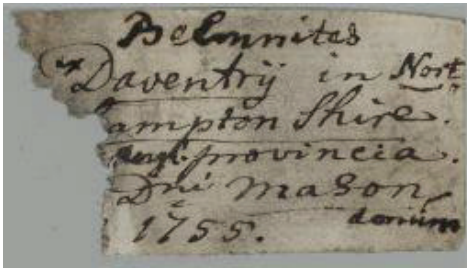 Belmnites
ex Daventrÿ in Nort
ampton Shire.
Angl. provincia.
Dni Mason,
donum
1755.